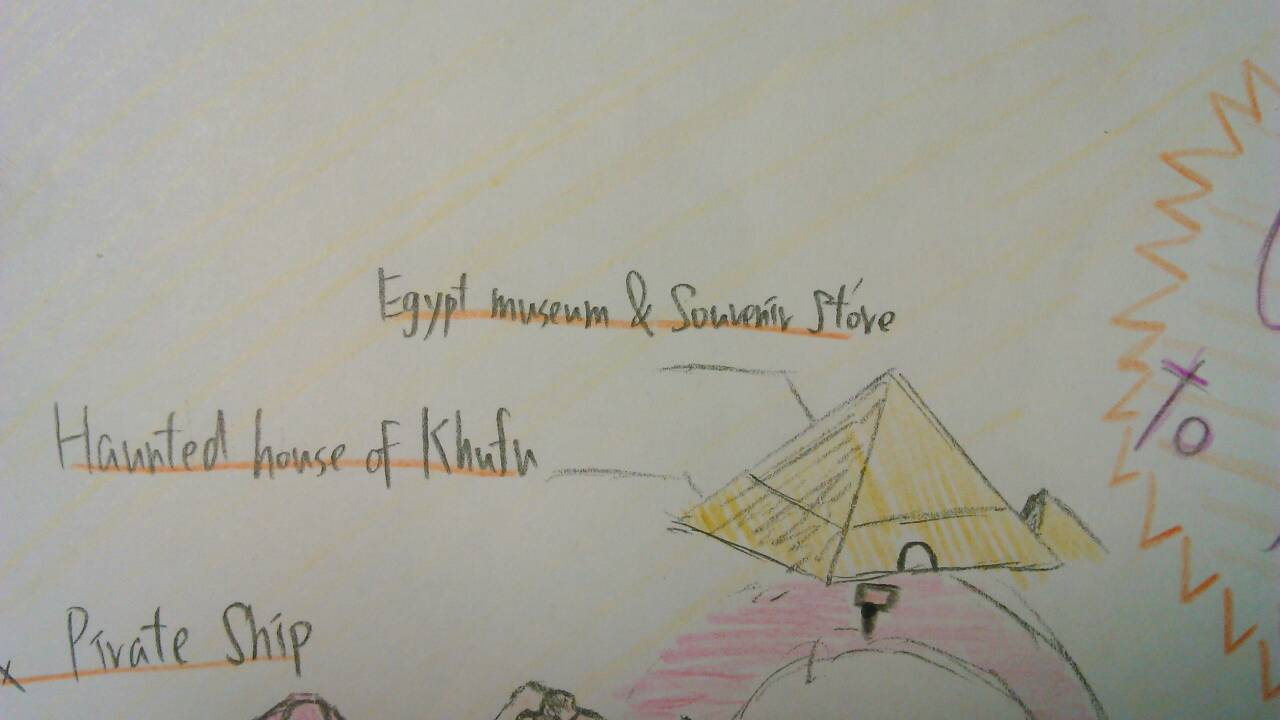 Egypt museum & Souvenir Store
Haunted house of Khufu
Pirate Ship
%